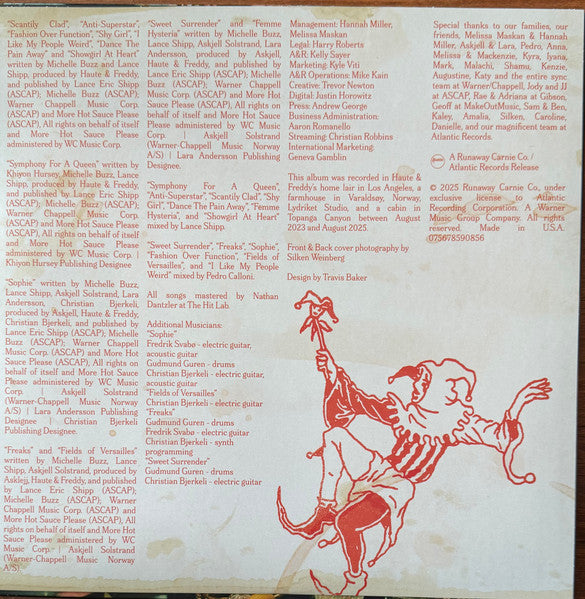 "Scantily Clad", "Anti-Superstar",
"Fashion Over Function", "Shy Girl", "I
Like My People Weird", "Dance The
Pain Away" and "Showgirl At Heart"
written by Michelle Buzz and Lance
Shipp, produced by Haute & Freddy,
and published by Lance Eric Shipp
(ASCAP); Michelle Buzz (ASCAP);
Warner Chappell Music Corp.
(ASCAP) and More Hot Sauce Please
(ASCAP), All rights on behalf of itself
and More Hot Sauce Please
administered by WC Music Corp.
"Symphony For A Queen" written by
Khiyon Hursey, Michelle Buzz, Lance
Shipp, produced by Haute & Freddy,
and published by Lance Eric Shipp
(ASCAP); Michelle Buzz (ASCAP);
Warner Chappell Music Corp.
(ASCAP) and More Hot Sauce Please
(ASCAP), All rights on behalf of itself
and More Hot Sauce Please
administered by WC Music Corp. |
Khiyon Hursey Publishing Designee
"Sophie" written by Michelle Buzz,
Lance Shipp, Askjell Solstrand, Lara
Andersson, Christian Bjerkeli,
produced by Askjell, Haute & Freddy,
Christian Bjerkeli, and published by
Lance Eric Shipp (ASCAP); Michelle
Buzz (ASCAP); Warner Chappell
Music Corp. (ASCAP) and More Hot
Sauce Please (ASCAP), All rights on
behalf of itself and More Hot Sauce
Please administered by WC Music
Corp. | Askjell Solstrand
(Warner-Chappell Music Norway
A/S) | Lara Andersson Publishing
Designee | Christian Bjerkeli
Publishing Designee.
"Freaks" and "Fields of Versailles"
written by Michelle Buzz, Lance
Shipp, Askjell Solstrand, produced by
Asklejj, Haute & Freddy, and published
by Lance Eric Shipp (ASCAP);
Michelle Buzz (ASCAP); Warner
Chappell Music Corp. (ASCAP) and
More Hot Sauce Please (ASCAP), All
rights on behalf of itself and More Hot
Sauce Please administered by WC
Music Corp. | Askjell Solstrand
(Warner-Chappell Music Norway
A/S).
"Sweet Surrender" and "Femme
Hysteria" written by Michelle Buzz,
Lance Shipp, Askjell Solstrand, Lara
Andersson, produced by Askjell,
Haute & Freddy, and published by
Lance Eric Shipp (ASCAP); Michelle
Buzz (ASCAP); Warner Chappell
Music Corp. (ASCAP) and More Hot
Sauce Please (ASCAP), All rights on
behalf of itself and More Hot Sauce
Please administered by WC Music
Corp. | Askjell Solstrand
(Warner-Chappell Music Norway
A/S) | Lara Andersson Publishing
Designee.
"Symphony For A Queen",
"Anti-Superstar", "Scantily Clad", "Shy
Girl", "Dance The Pain Away", "Femme
Hysteria", and "Showgirl At Heart"
mixed by Lance Shipp.
"Sweet Surrender", "Freaks", "Sophie",
"Fashion Over Function", "Fields of
Versailles", and "I Like My People
Weird" mixed by Pedro Calloni.
All songs mastered by Nathan
Dantzler at The Hit Lab.
Additional Musicians:
"Sophie"
Fredrik Svabø - electric guitar,
acoustic guitar
Gudmund Guren - drums
Christian Bjerkeli - electric guitar,
acoustic guitar
"Fields of Versailles"
Christian Bjerkeli - electric guitar
"Freaks"
Gudmund Guren - drums
Fredrik Svabø - electric guitar
Christian Bjerkeli - synth
programming
"Sweet Surrender"
Gudmund Guren - drums
Christian Bjerkeli - electric guitar
Management: Hannah Miller,
Melissa Maskan
Legal: Harry Roberts
A&R: Kelly Sayer
Marketing: Kyle Viti
A&R Operations: Mike Kain
Creative: Trevor Newton
Digital: Justin Horowitz
Press: Andrew George
Business Administration:
Aaron Romanello
Streaming: Christian Robbins
International Marketing:
Geneva Gamblin
This album was recorded in Haute &
Freddy's home lair in Los Angeles, a
farmhouse in Varaldsøy, Norway,
Lydriket Studio, and a cabin in
Topanga Canyon between August
2023 and August 2025.
Front & Back cover photography by
Silken Weinberg
Design by Travis Baker
Special thanks to our families, our
friends, Melissa Maskan & Hannah
Miller, Askjell & Lara, Pedro, Anna,
Melissa & Mackenzie, Kyra, Iyana,
Mark, Malachi, Shamu, Kenzie,
Augustine, Katy and the entire sync
team at Warner/Chappell, Jody and JJ
at ASCAP, Rae & Adriana at Gibson,
Geoff at MakeOutMusic, Sam & Ben,
Kaley, Amalia, Silken, Caroline,
Danielle, and our magnificent team at
Atlantic Records.
A Runaway Carnie Co. /
Atlantic Records Release
© 2025 Runaway Carnie Co., under
exclusive license to Atlantic
Recording Corporation. A Warner
Music Group Company. All rights
reserved. Made in U.S.A.
075678590856